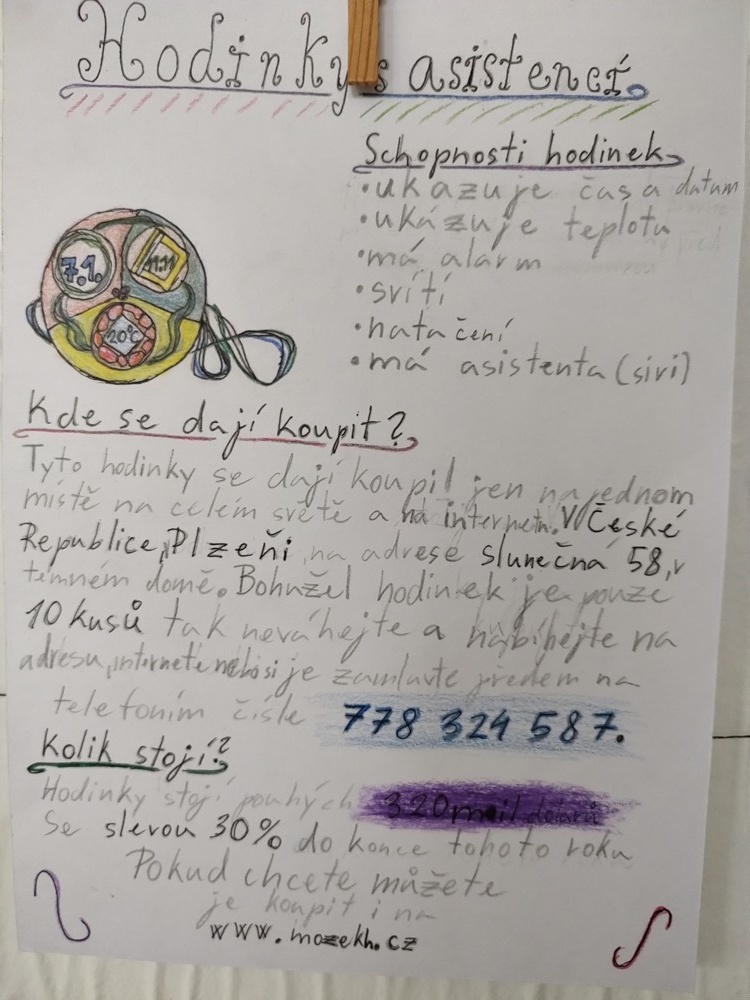 Hodinky s asistencí.
Schopnosti hodinek
•ukazuje čas a datum
•ukázuje teplotu
•má alarm
•svítí
•natačení
•má asistenta (sivi)
7.1.
11:11
20°C
Kde se dají koupit?
Tyto hodinky se dají koupil jen na jednom
místě na celém světě a na internetu. V České
Republice, Plzeňi na adrese slunečná 58, v
temném domě. Bohužel hodinek je pouze
10 kusů tak neváhejte a nabíhejte na
adresu, internete nebo si je zamluvte předem na
telefoním čísle 778 324 587.
Kolik stojí?
Hodinky stojí pouhých 320 mil dolarů
Se slevou 30% do konce tohoto roku
Pokud chcete můžete
je koupit i na
www.mozekh.cz